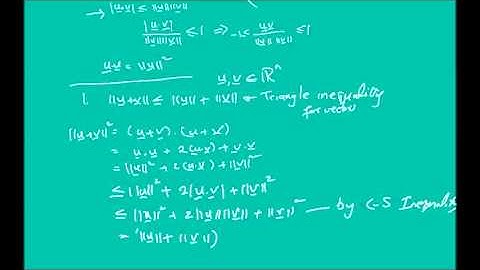 → |u.v| ≤ ||u|| ||v||
|u.v| / ||u|| ||v|| ≤ 1 ⇒ -1 ≤ u.v / ||u|| ||v|| ≤ 1
u.u = ||u||²
u, v ∈ ℝⁿ
1. ||u+v|| ≤ ||u|| + ||v|| ← Triangle inequality for vector
||u+v||² = (u+v) . (u+v)
= u.u + 2(u.v) + v.v
= ||u||² + 2(u.v) + ||v||²
≤ ||u||² + 2|u.v| + ||v||²
≤ ||u||² + 2||u|| ||v|| + ||v||² — by C-S Inequality
= (||u|| + ||v||)